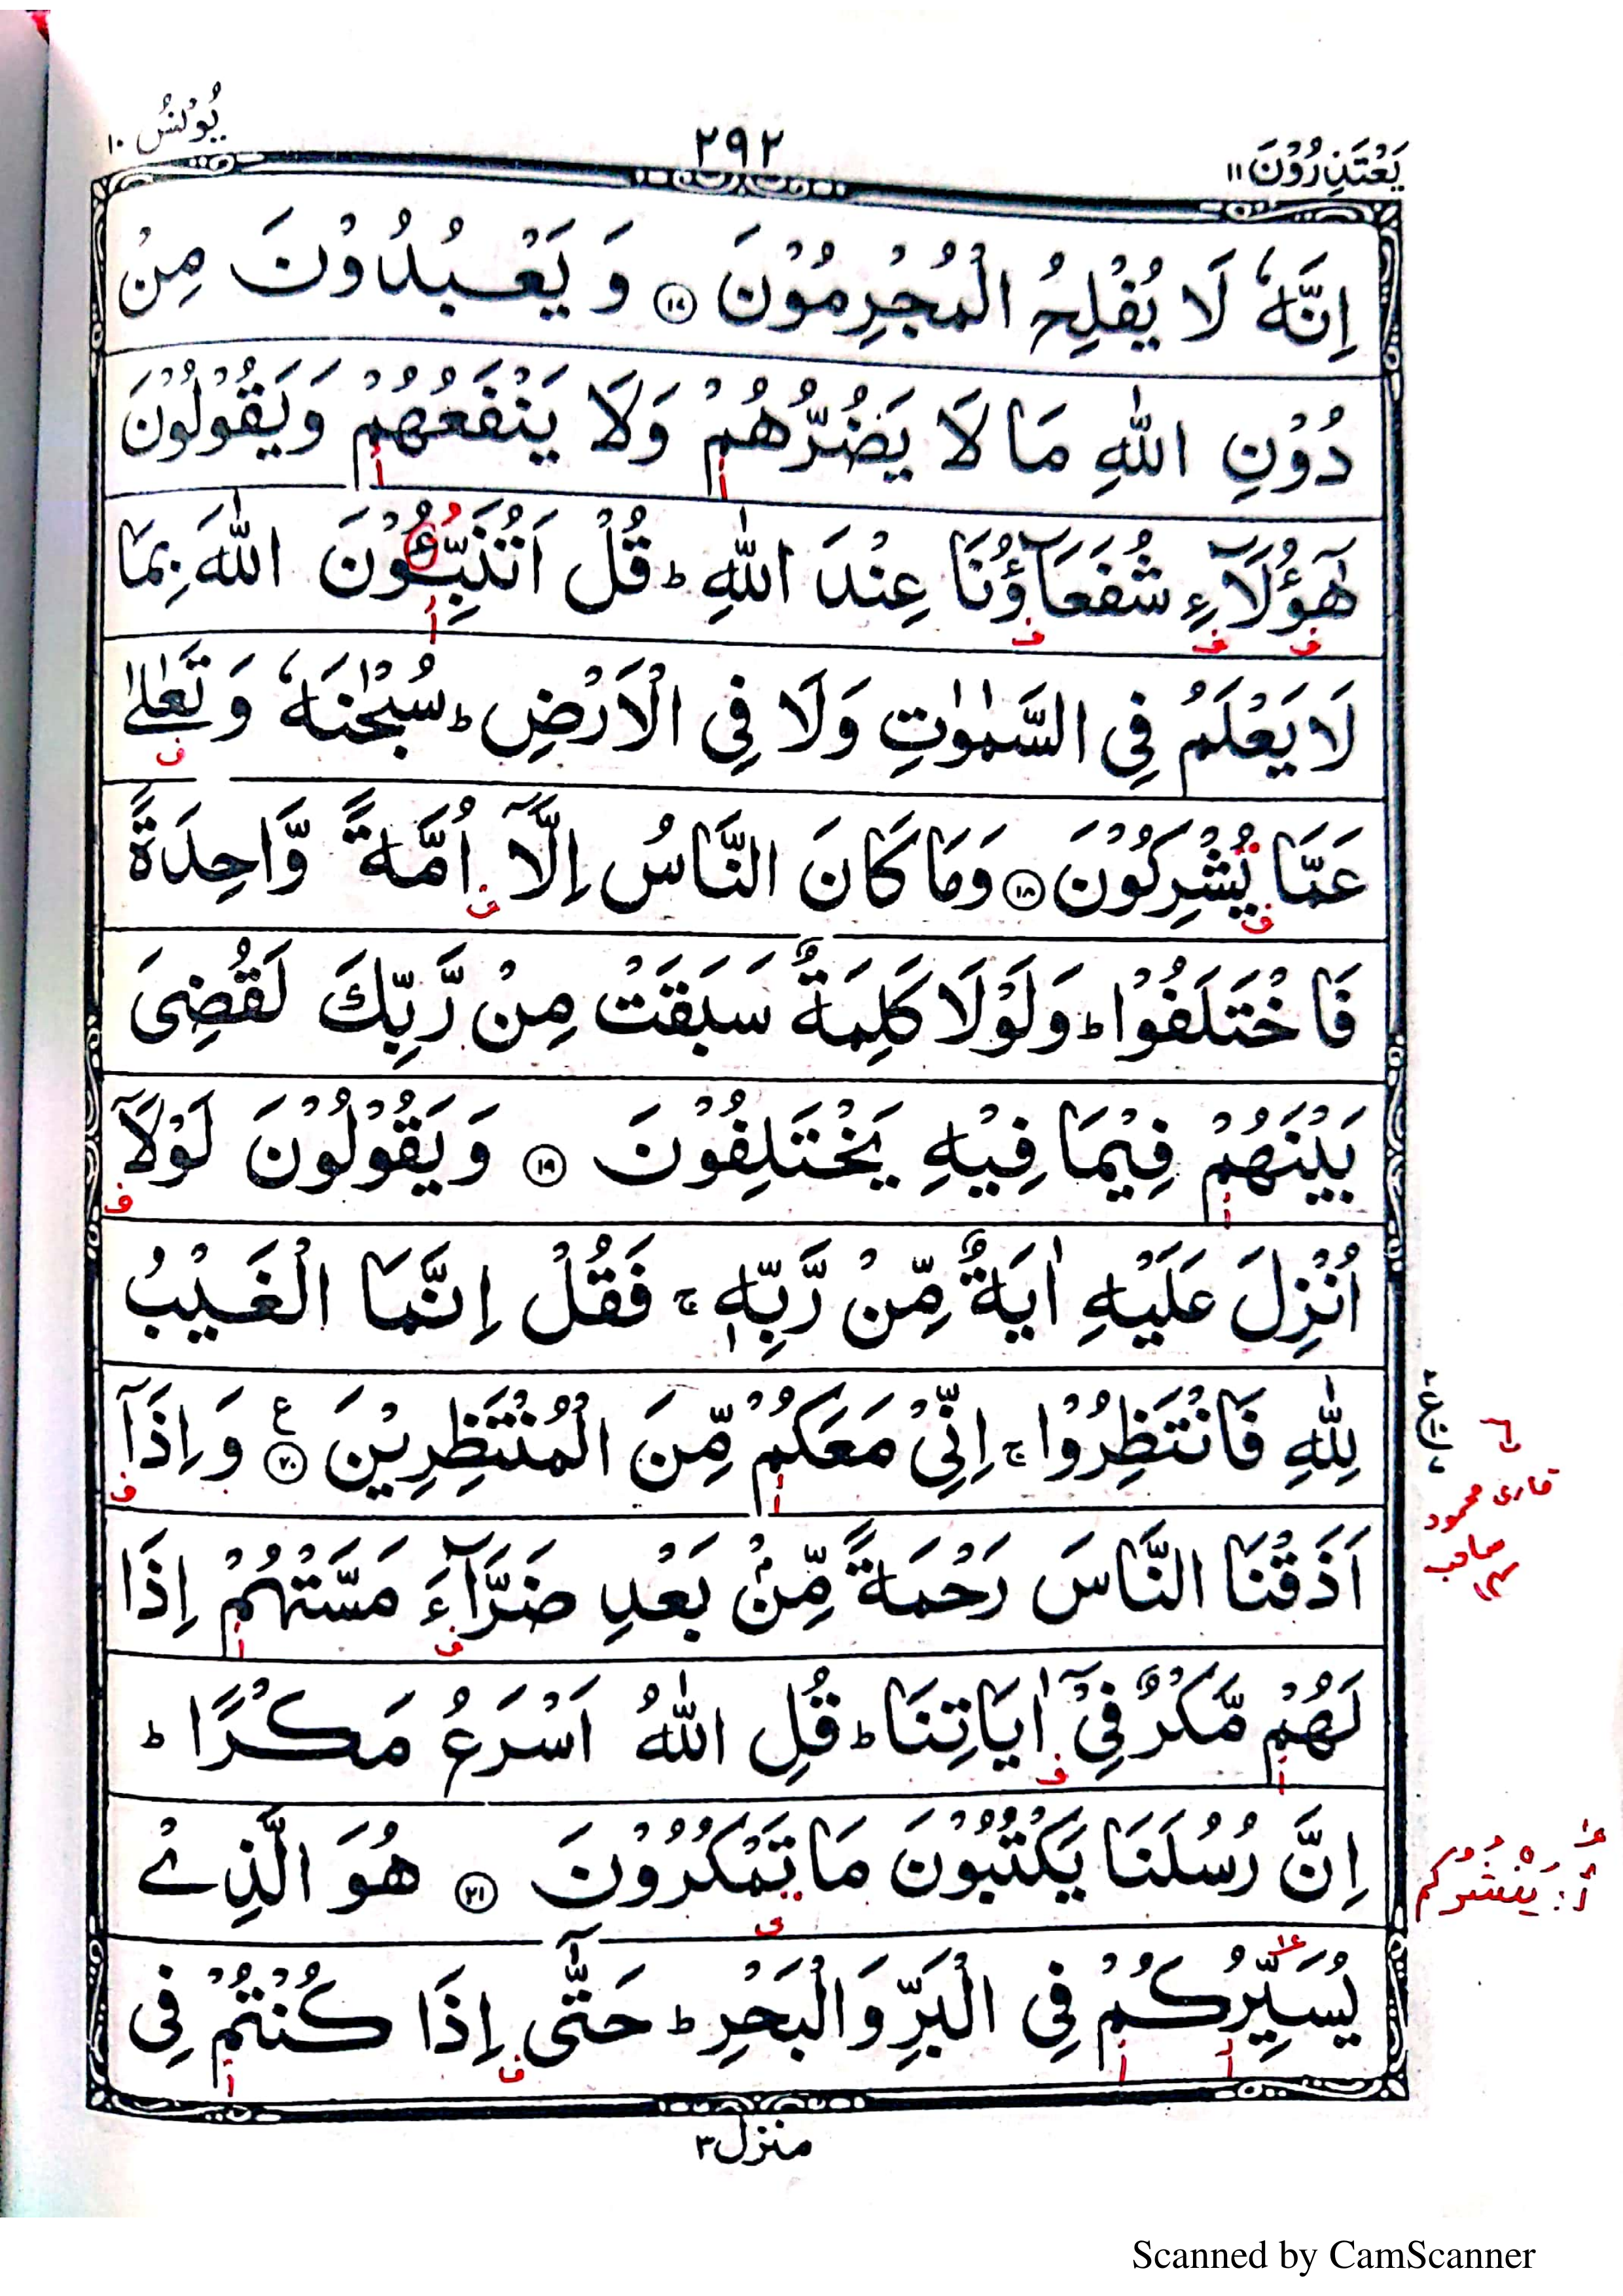 يَعْتَذِرُوْنَ ١١
٢٩٢
يُوْنُسُ ١٠
اِنَّهٗ لَا يُفْلِحُ الْمُجْرِمُوْنَ ١٧ وَ يَعْبُدُوْنَ مِنْ
دُوْنِ اللّٰهِ مَا لَا يَضُرُّهُمْ وَلَا يَنْفَعُهُمْ وَيَقُوْلُوْنَ
هٰٓؤُلَآءِ شُفَعَآؤُنَا عِنْدَ اللّٰهِ ؕ قُلْ اَتُنَبِّـُٔوْنَ اللّٰهَ بِمَا
لَا يَعْلَمُ فِى السَّمٰوٰتِ وَلَا فِى الْاَرْضِ ؕ سُبْحٰنَهٗ وَ تَعٰلٰے
عَمَّا يُشْرِكُوْنَ ١٨ وَمَا كَانَ النَّاسُ اِلَّآ اُمَّةً وَّاحِدَةً
فَاخْتَلَفُوْا ؕ وَلَوْلَا كَلِمَةٌ سَبَقَتْ مِنْ رَّبِّكَ لَقُضِىَ
بَيْنَهُمْ فِيْمَا فِيْهِ يَخْتَلِفُوْنَ ١٩ وَيَقُوْلُوْنَ لَوْلَآ
اُنْزِلَ عَلَيْهِ اٰيَةٌ مِّنْ رَّبِّهٖ ۚ فَقُلْ اِنَّمَا الْغَيْبُ
لِلّٰهِ فَانْتَظِرُوْا ۚ اِنِّىْ مَعَكُمْ مِّنَ الْمُنْتَظِرِيْنَ ٢٠ ع وَ اِذَآ
قاری محمود
صاحب
اَذَقْنَا النَّاسَ رَحْمَةً مِّنْۢ بَعْدِ ضَرَّآءَ مَسَّتْهُمْ اِذَا
لَهُمْ مَّكْرٌ فِىْٓ اٰيَاتِنَا ؕ قُلِ اللّٰهُ اَسْرَعُ مَكْرًا ؕ
اِنَّ رُسُلَنَا يَكْتُبُوْنَ مَا تَمْكُرُوْنَ ٢١ هُوَ الَّذِىْ
أ: يَنْشُرُكُمْ
يُسَيِّرُكُمْ فِى الْبَرِّ وَالْبَحْرِ ؕ حَتّٰٓى اِذَا كُنْتُمْ فِى
منزل ٣
Scanned by CamScanner